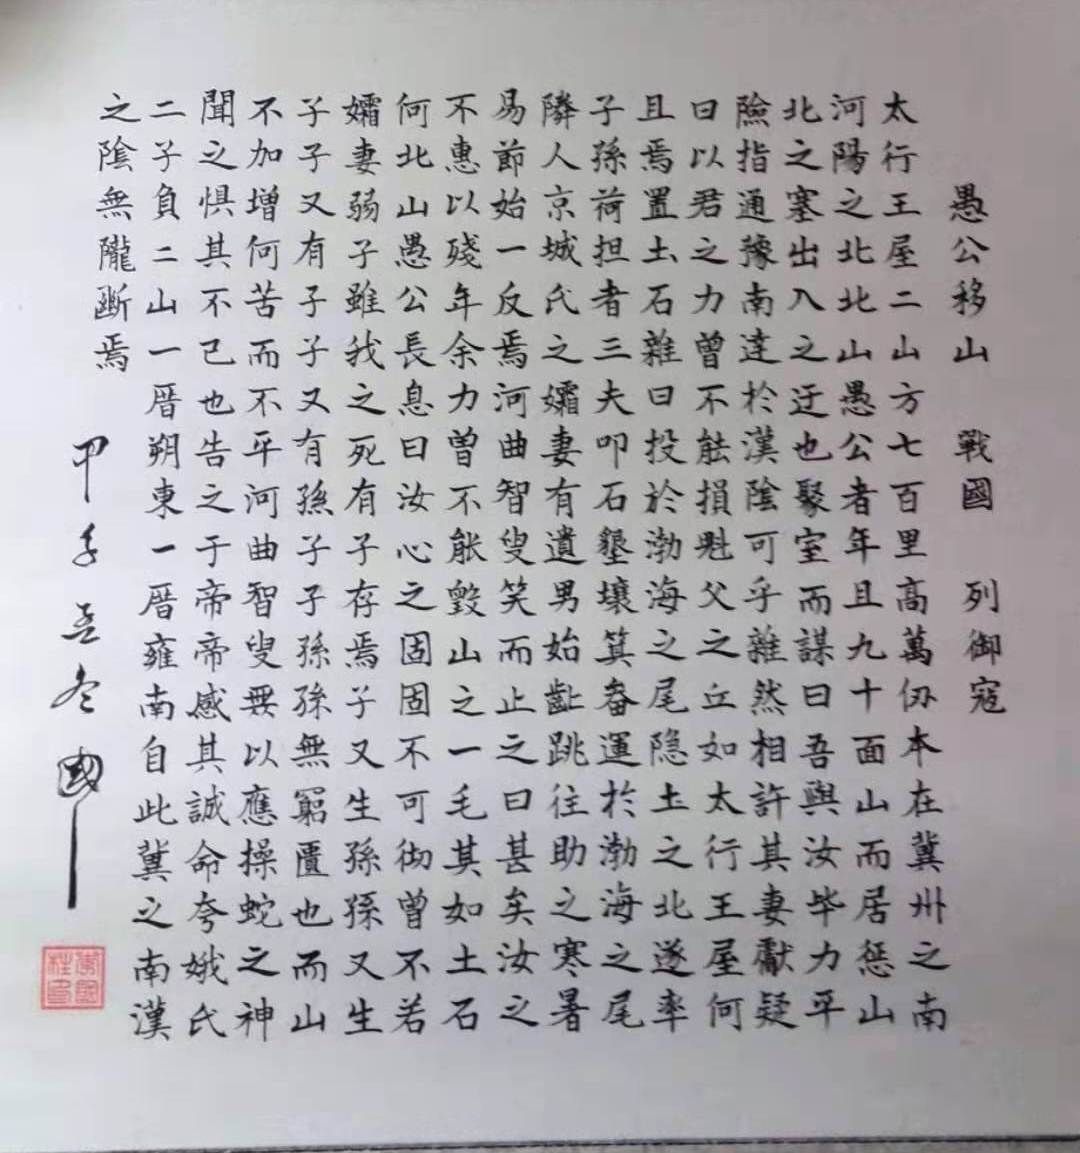 愚公移山 戰國 列御寇
太行王屋二山方七百里高萬仞本在冀州之南
河陽之北北山愚公者年且九十面山而居惩山
北之塞出入之迂也聚室而謀曰吾與汝毕力平
險指通豫南達於漢陰可乎雜然相許其妻獻疑
曰以君之力曾不能損魁父之丘如太行王屋何
且焉置土石雜曰投於渤海之尾隐土之北遂率
子孫荷担者三夫叩石墾壤箕畚運於渤海之尾
隣人京城氏之孀妻有遺男始齔跳往助之寒暑
易節始一反焉河曲智叟笑而止之曰甚矣汝之
不惠以殘年余力曾不能毀山之一毛其如土石
何北山愚公長息曰汝心之固固不可彻曾不若
孀妻弱子雖我之死有子存焉子又生孫孫又生
子子又有子子又有孫子子孫孫無窮匱也而山
不加增何苦而不平河曲智叟無以應操蛇之神
聞之惧其不已也告之于帝帝感其誠命夸娥氏
二子負二山一厝朔東一厝雍南自此冀之南漢
之陰無隴斷焉
甲子孟冬 國